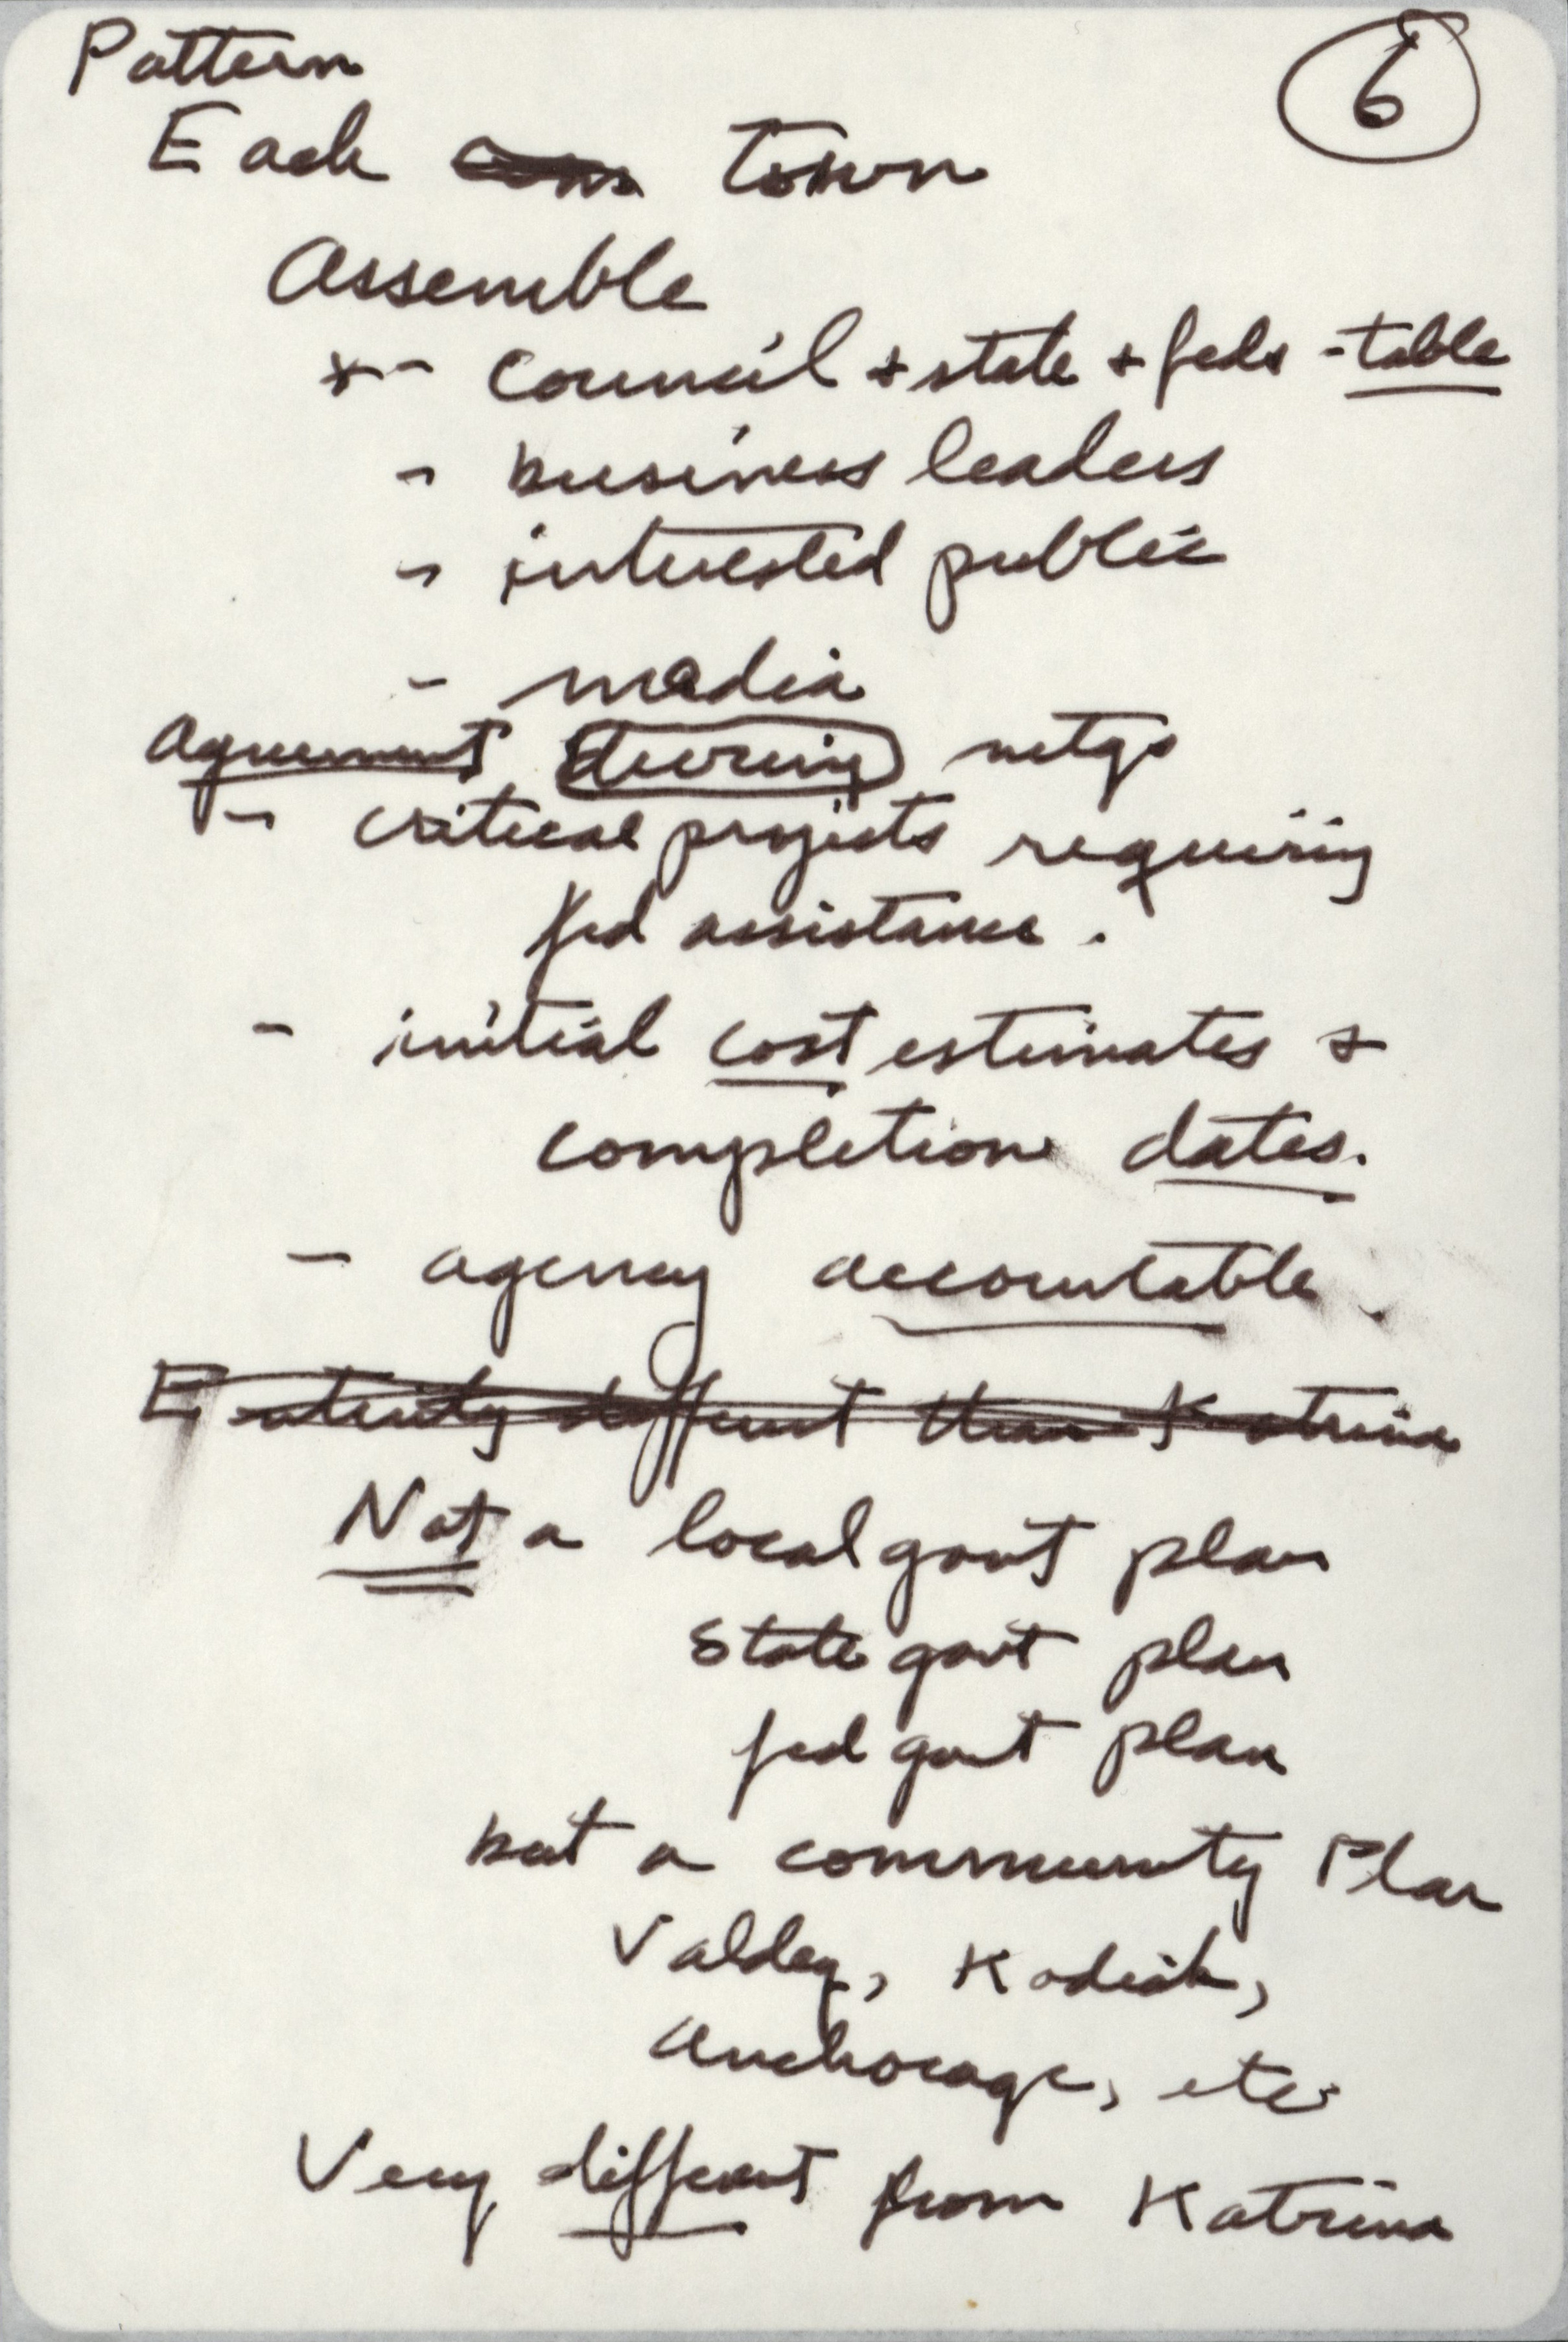 Pattern
6
Each town
Assemble
*- council + state + feds - table
- business leaders
- interested public
- media
Agreement during mtgs
- critical projects requiring
fed assistance.
- initial cost estimates &
completion dates.
- agency accountable.
Entirely different than Katrina
Not a local govt plan
State govt plan
fed govt plan
but a community Plan
Valdez, Kodiak,
Anchorage, etc
Very different from Katrina